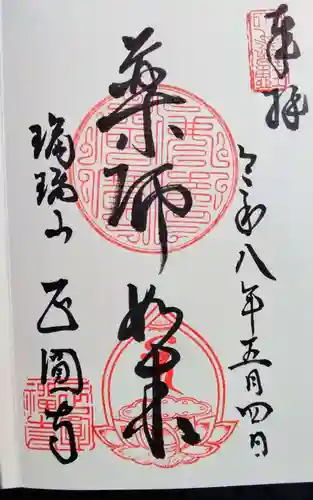 奉拝
令和八年五月四日
薬師如来
瑠璃山
正圓寺